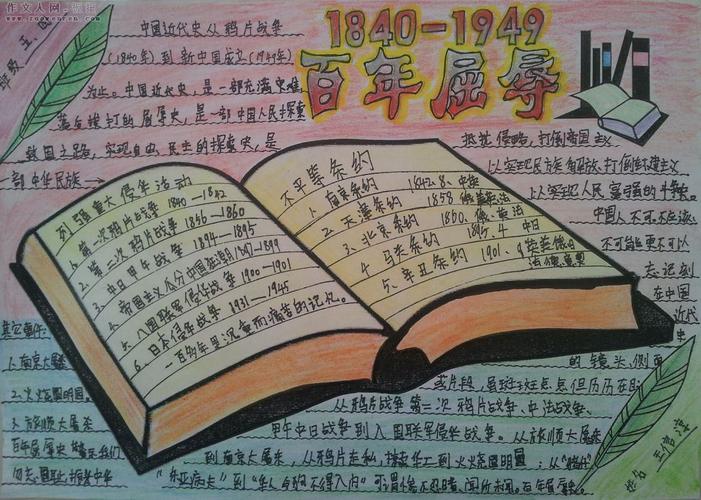 作文人网
班级 五、四
1840-1949
百年屈辱
中国近代史从鸦片战争
(1840年)到新中国成立(1949年)
为止。中国近代史,是一部充满灾难、
落后挨打的屈辱史,是一部中国人民探索
救国之路,实现自由、民主的探索史,是
一部中华民族
抵抗侵略,打倒帝国主义
以实现民族解放、打倒封建主义
以实现人民富强的斗争史。
中国人不可不应该
不可能更不可以
忘记刻
在中国
近代
史
的镜头,侧面
或片段,虽斑斑点点但历历在目
从鸦片战争第二次鸦片战争、中法战争、
甲午中日战争到八国联军侵华战争。从旅顺大屠杀
到南京大屠杀,从鸦片走私,掠卖华工到火烧圆明园;从
"东亚病夫"到"华人与狗不得入内"可谓惨不忍睹、闻所未闻
列强重大侵华活动
1、第一次鸦片战争 1840—1842
2、第二次鸦片战争 1856—1860
3、中日甲午战争 1894—1895
4、帝国主义瓜分中国狂潮 1897—1899
5、八国联军侵华战争 1900—1901
6、日本侵华战争 1931—1945
一百多年里沉重而痛苦的记忆。
不平等条约
1、南京条约 1842.8 中英
2、天津条约 1858 俄美英法
3、北京条约 1860 俄英法
4、马关条约 1895.4 中日
5、辛丑条约 1901.9
其它事件:
1、南京大屠杀
2、火烧圆明园
3、旅顺大屠杀
百年屈辱史警示我们
勿忘国耻振兴中华
姓名